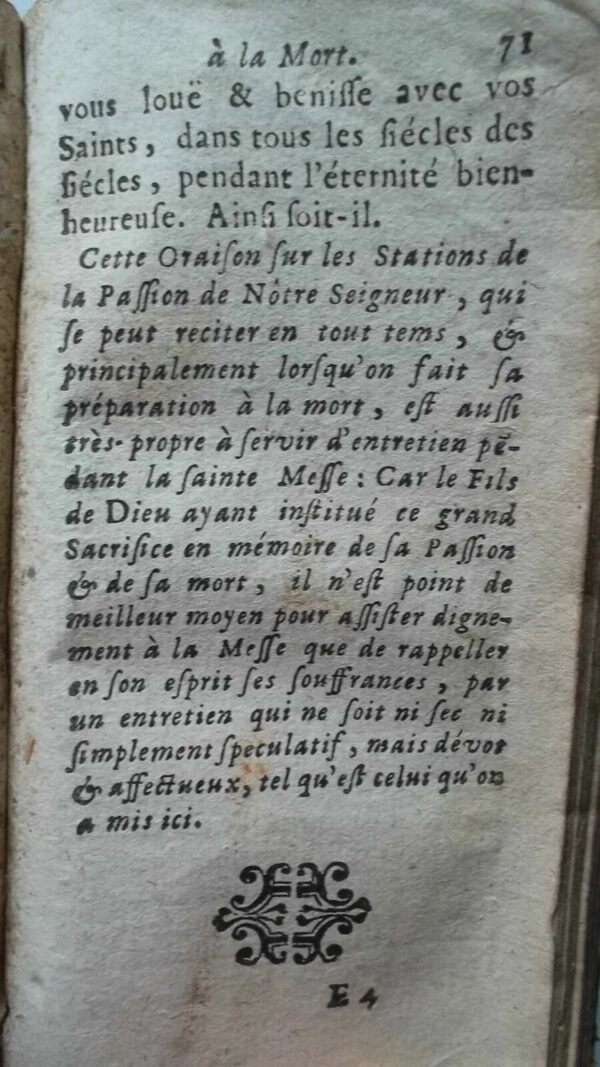 à la Mort. 71
vous louë & beniſſe avec vos
Saints, dans tous les ſiécles des
ſiécles, pendant l'éternité bien-
heureuſe. Ainſi ſoit-il.
Cette Oraiſon ſur les Stations de
la Paſſion de Nôtre Seigneur, qui
ſe peut reciter en tout tems, &
principalement lorſqu'on fait ſa
préparation à la mort, eſt auſſi
très-propre à ſervir d'entretien pẽ-
dant la ſainte Meſſe : Car le Fils
de Dieu ayant inſtitué ce grand
Sacrifice en mémoire de ſa Paſſion
& de ſa mort, il n'eſt point de
meilleur moyen pour aſſiſter digne-
ment à la Meſſe que de rappeller
en ſon eſprit ſes ſouffrances, par
un entretien qui ne ſoit ni ſec ni
ſimplement ſpeculatif, mais dévot
& affectueux, tel qu'eſt celui qu'on
a mis ici.
E 4